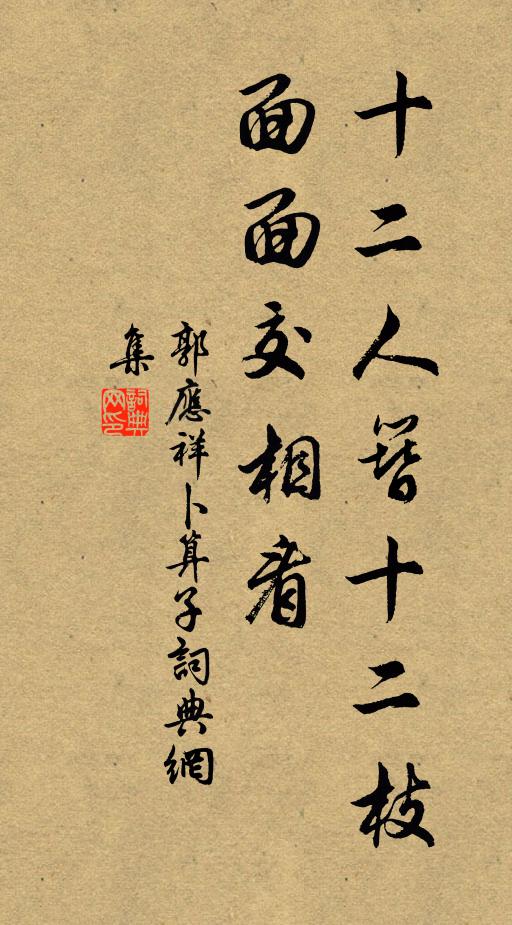 十二人簪十二枝
面面交相看
郭應祥卜算子詞典網
集
詞典网印